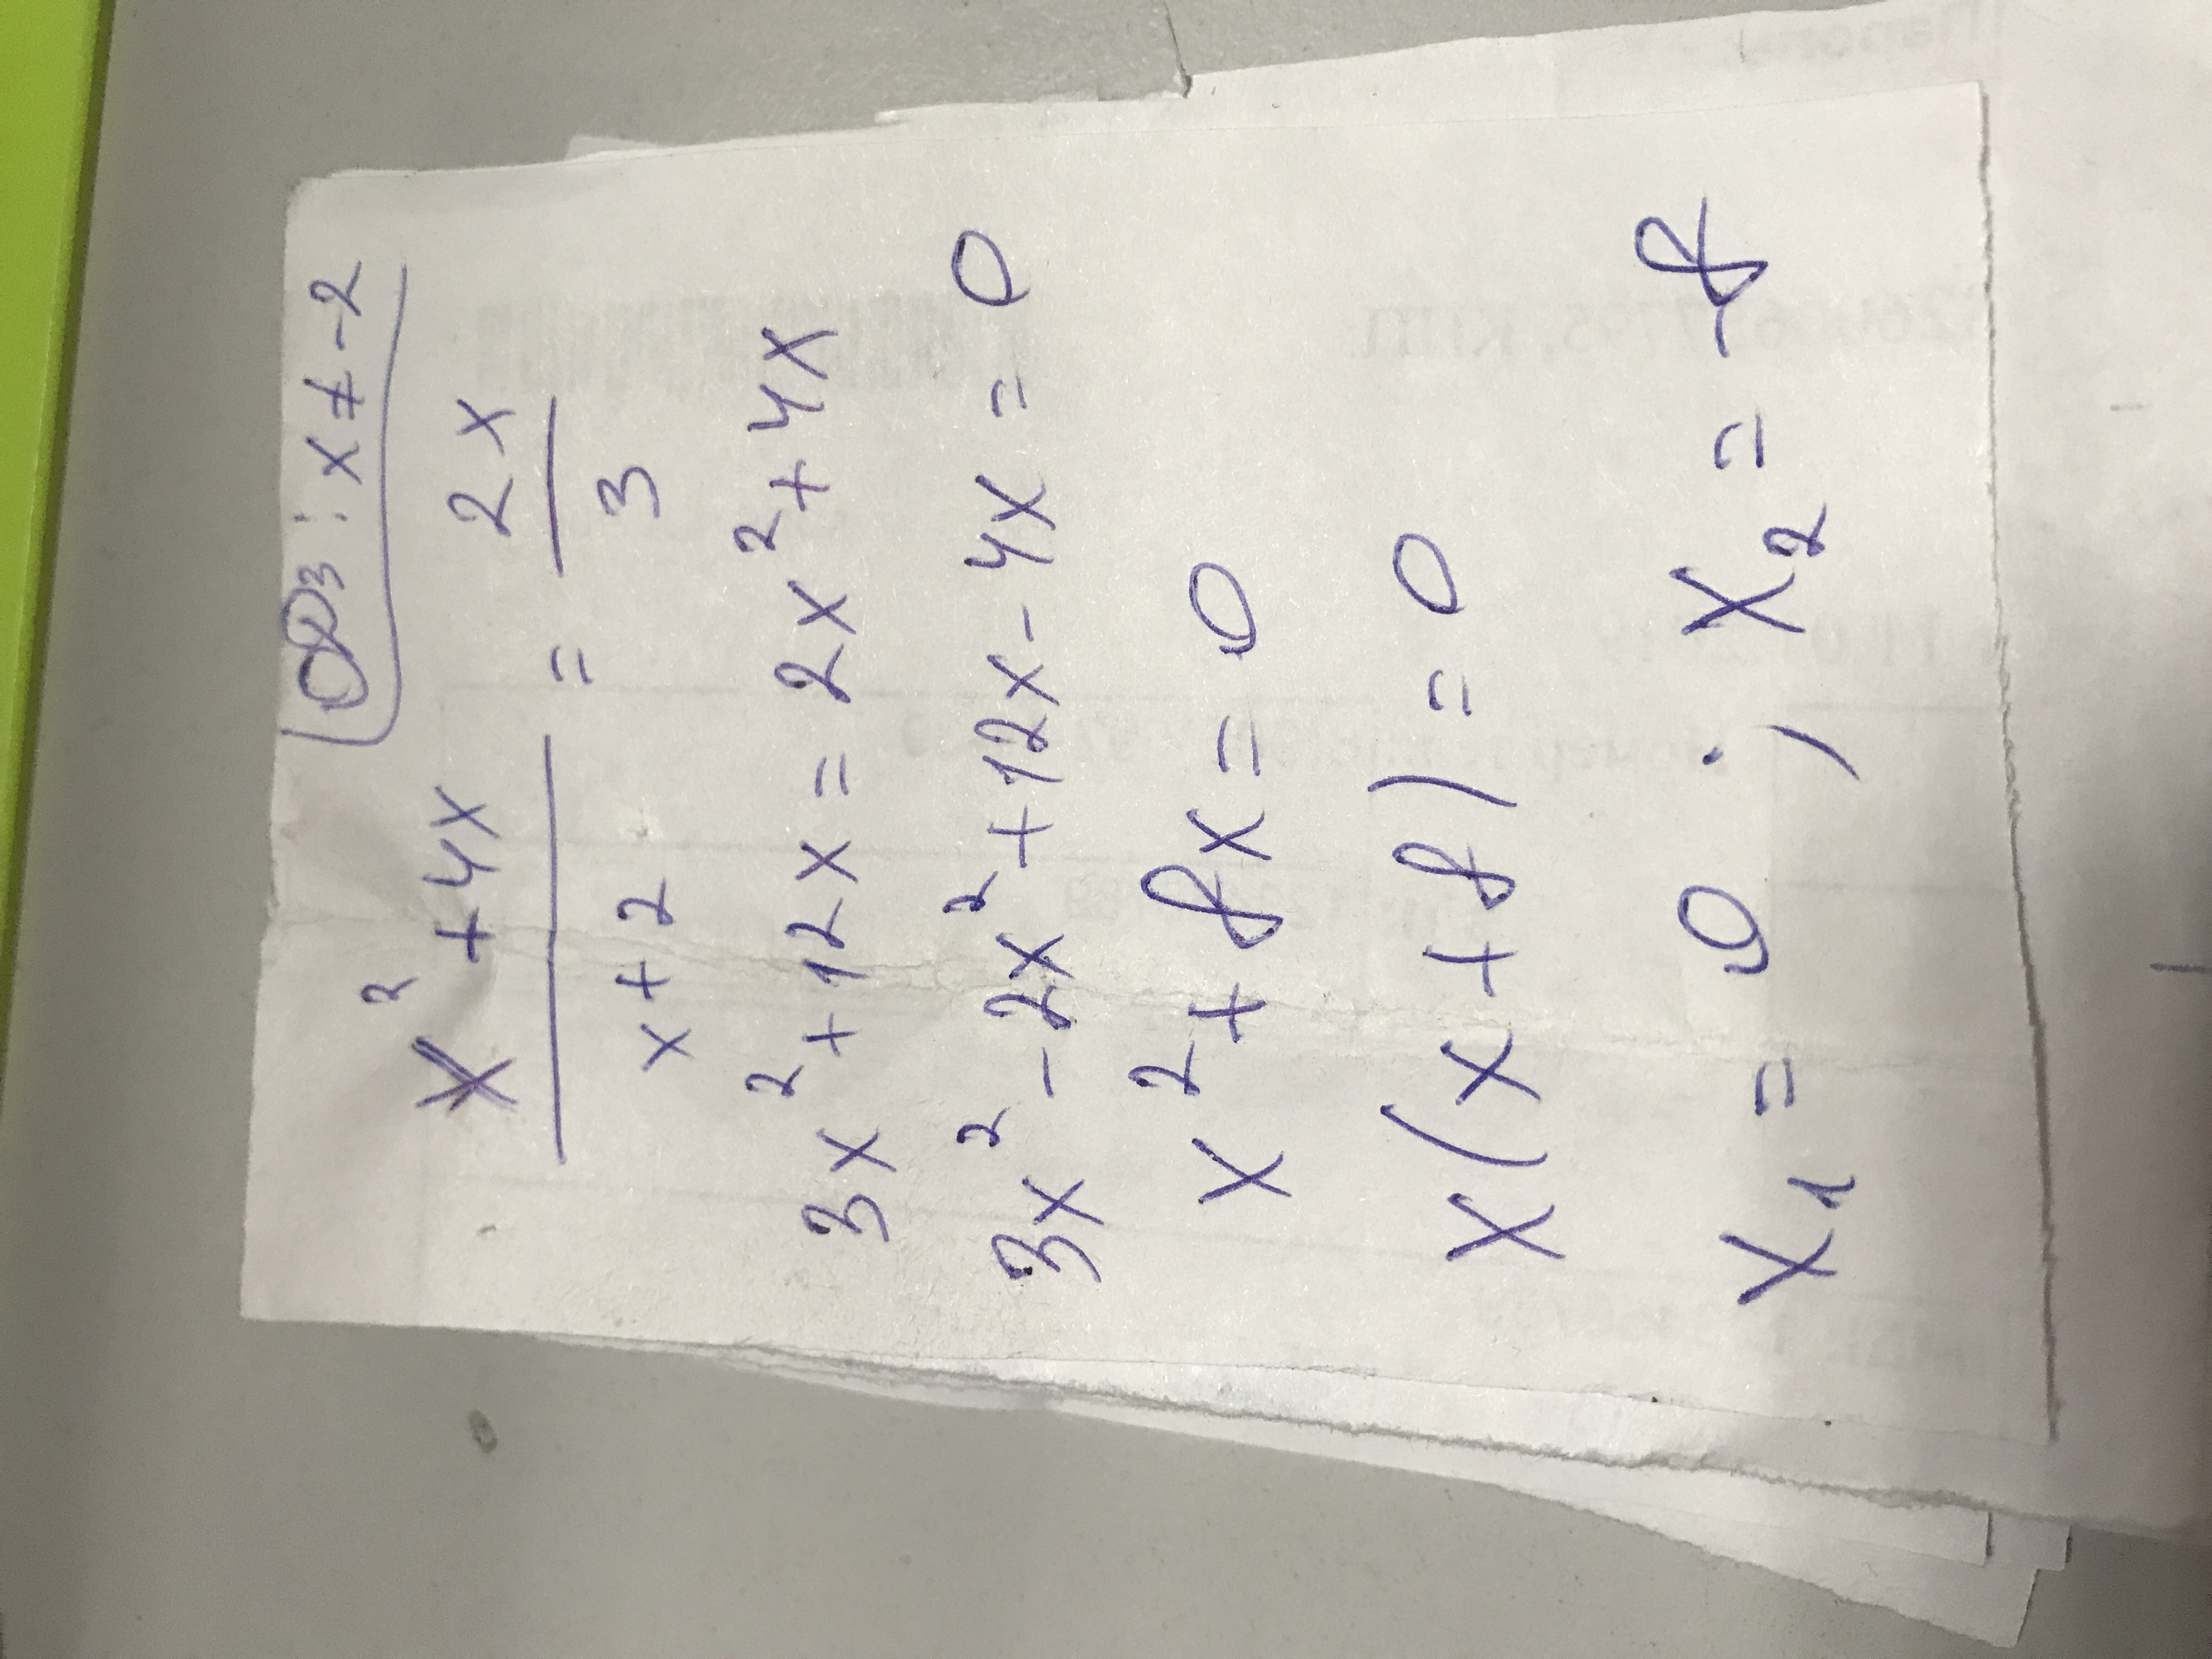 ОДЗ: x ≠ -2
x² + 4x / x + 2 = 2x / 3
3x² + 12x = 2x² + 4x
3x² - 2x² + 12x - 4x = 0
x² + 8x = 0
x(x + 8) = 0
x₁ = 0 ; x₂ = -8